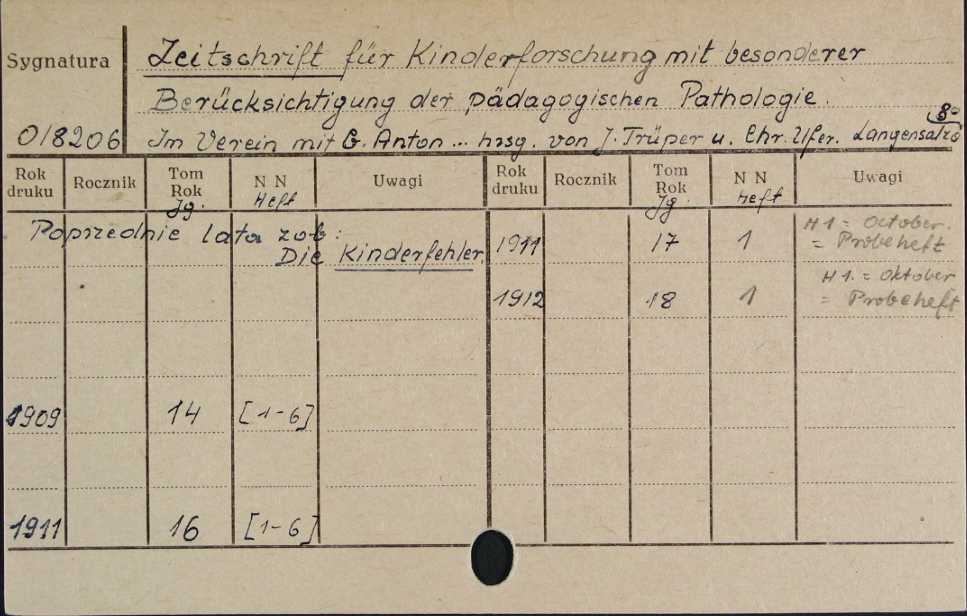 Sygnatura
O/8206
Zeitschrift für Kinderforschung mit besonderer
Berücksichtigung der pädagogischen Pathologie.
8°
Im Verein mit G. Anton ... hrsg. von J. Trüper u. Chr. Ufer. Langensalza
Rok druku Rocznik Tom Rok Jg. N N Heft Uwagi Rok druku Rocznik Tom Rok Jg. N N Heft Uwagi
Poprzednie lata zob:
Die Kinderfehler.
1909 14 [1-6]
1911 16 [1-6]
1911 17 1 H 1 = October.
= Probeheft
1912 18 1 H 1. = Oktober
= Probeheft